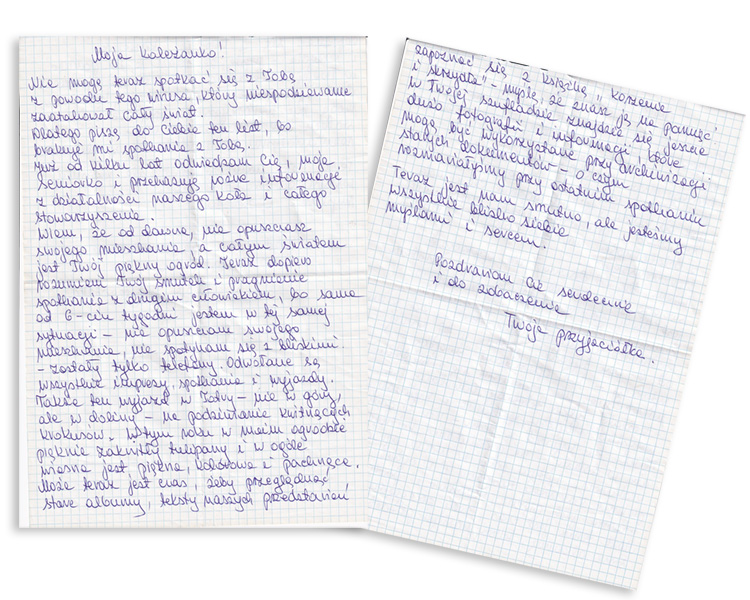 Moja Koleżanko!
Nie mogę teraz spotkać się z Tobą
z powodu tego wirusa, który niespodziewanie
zaatakował cały świat.
Dlatego piszę do Ciebie ten list, bo
brakuje mi spotkania z Tobą.
Już od kilku lat odwiedzam Cię, moja
Seniorko i przekazuję różne informacje
z działalności naszego Koła i całego
stowarzyszenia.
Wiem, że od dawna, nie opuszczasz
swojego mieszkania, a całym światem
jest Twój piękny ogród. Teraz dopiero
rozumiem Twój smutek i pragnienie
spotkania z drugim człowiekiem, bo sama
od 6-ciu tygodni jestem w tej samej
sytuacji - nie opuszczam swojego
mieszkania, nie spotykam się z bliskimi.
- zostały tylko telefony. Odwołane są
wszystkie imprezy, spotkania i wyjazdy.
Także ten wyjazd w Tatry - nie w góry,
ale w doliny - na podziwianie kwitnących
krokusów. W tym roku w moim ogrodzie
pięknie zakwitły tulipany i w ogóle
wiosna jest piękna, kolorowa i pachnąca.
Może teraz jest czas, żeby przeglądnąć
stare albumy, teksty naszych przedstawień
zapoznać się z książką „Korzenie
i skrzydła" - myślę, że znasz ją na pamięć
w Twojej szufladzie znajdzie się jeszcze
dużo fotografii i informacji, które
mogą być wykorzystane przy archiwizacji
starych dokumentów - o czym
rozmawiałyśmy przy ostatnim spotkaniu
Teraz jest nam smutno, ale jesteśmy
wszystkie blisko siebie
myślami i sercem.
Pozdrawiam Cię serdecznie
i do zobaczenia
Twoja przyjaciółka.